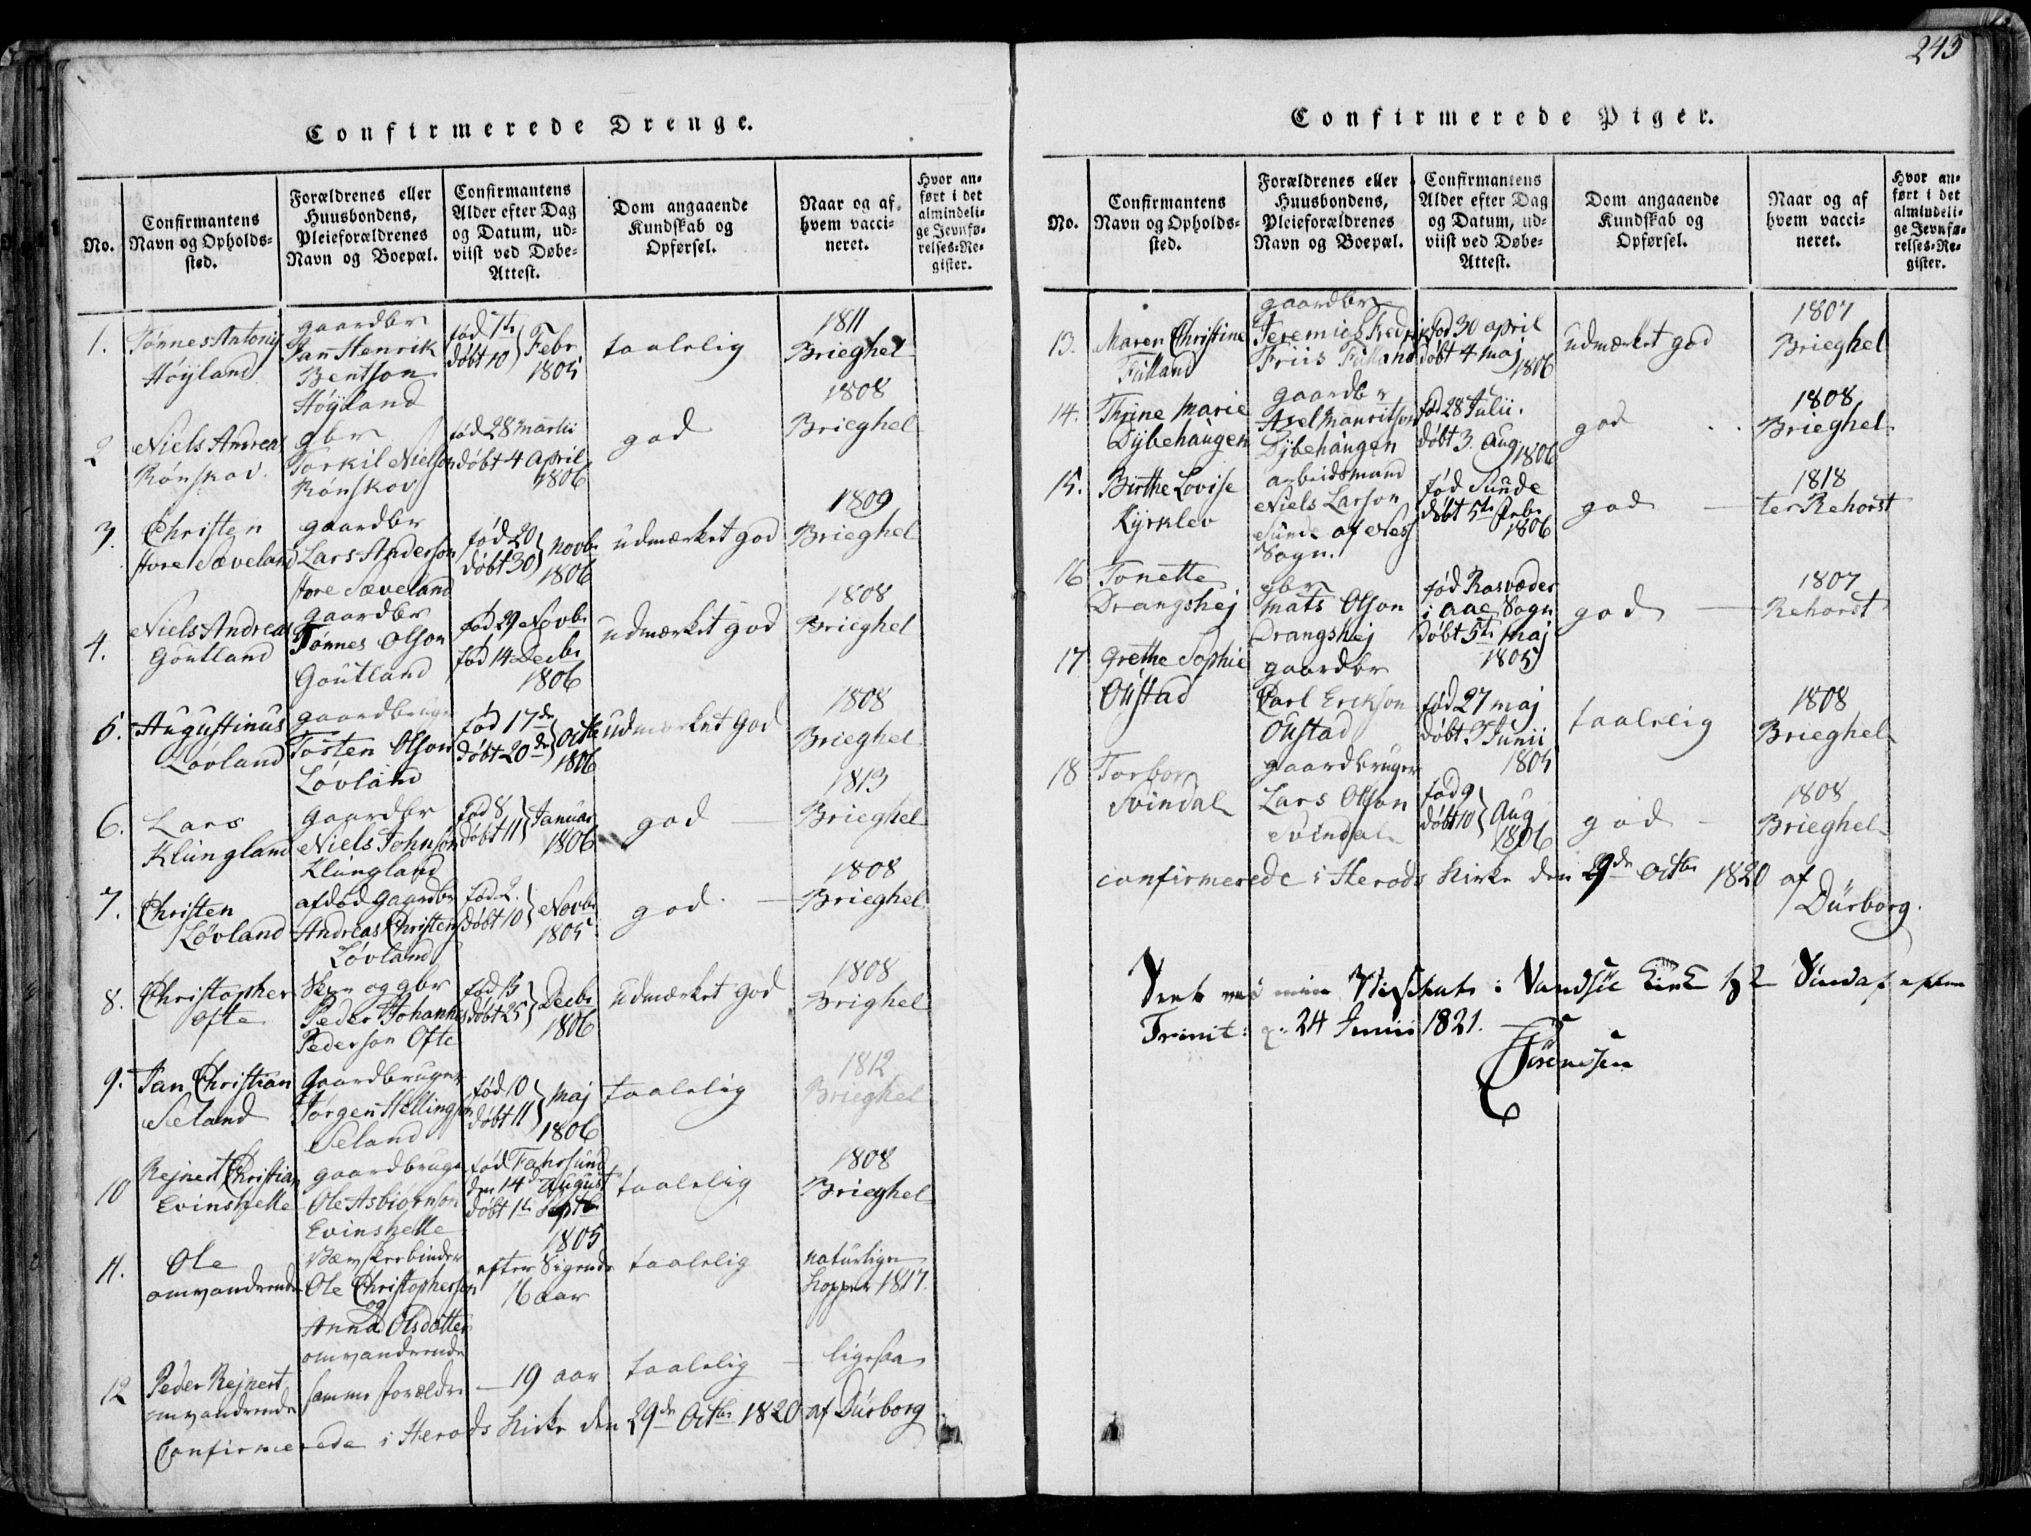 243
Confirmerede Drenge.
No.
Confirmantens
Navn og Opholds-
sted.
Forældrenes eller
Huusbondens,
Pleieforældrenes
Navn og Boepæl.
Confirmantens
Alder efter Dag
og Datum, ud-
viist ved Døbe-
Attest.
Dom angaaende
Kundskab og
Opførsel.
Naar og af
hvem vacci-
neret.
Hvor an-
ført i det
almindeli-
ge Jevnfø-
relses-Re-
gister.
1.
Tønnes Antoni
Høyland
gaardbr
Jan Henrik
Bentson
Høyland
fød 7de
døbt 10 Febr
1805
taalelig
1811
Brieghel
2
Niels Andreas
Rønskov.
gbr
Torkil Nielson
Rønskov
fød 28 martii
døbt 4 April
1806
god
1808
Brieghel
3.
Christen
store Sæveland
gaardbr
Lars Anderson
store Sæveland
fød 20
døbt 30 novbr
1806
udmærket god
1809
Brieghel
4.
Niels Andreas
Goutland
gaardbr
Tønnes Olson
Goutland
fød 29 Novbr
fød 14 Decbr
1806
udmærket god
1808
Brieghel
5.
Augustinus
Løvland
gaardbruger
Tosten Olson
Løvland
fød 17de
døbt 20de Octb
1806
udmærket god
1808
Brieghel
6.
Lars
Klungland
gaardbr
Niels Johnson
Klungland
fød 8
døbt 11 Januar
1806
god
1813
Brieghel
7.
Christen
Løvland
afdød gaardbr
Andreas Christens
Løvland
fød 2.
døbt 10 Novbr
1805
god.
1808
Brieghel
8.
Christopher
Ofte
Skpr og gbr
Peder Johannes
Pederson Ofte
fød 13
døbt 25 Decbr
1806
udmærket god
1808
Brighel
9.
Jan Christian
Seland
Gaardbruger
Jørgen Hellingson
Seland
fød 10
døbt 11 Maj
1806
taalelig
1812
Brieghel
10
Rejnert Christian
Evinshelle
gaardbruger
Ole Asbiørnson
Evinshelle
fød Fahrsund
den 14de August
døbt 1te Septb
1805
taalelig
1808
Brieghel
11.
Ole
omvandrende
Vævskeebinder
Ole Christopherson
og
Anna Olsdatter
omvandrende
efter Sigende
16 aar
taalelig
naturlige
kopper 1817.
12
Peder Rejnert
omvandrende
samme forældre
— 19 aar
taalelig
ligesaa
Confirmerede i Herods Kirke den 29de Octbr 1820 af Dürborg
Confirmerede Piger.
No.
Confirmantens
Navn og Opholds-
sted.
Forældrenes eller
Huusbondens,
Pleieforældrenes
Navn og Boepæl.
Confirmantens
Alder efter Dag
og Datum, ud-
viist ved Døbe-
Attest.
Dom angaaende
Kundskab og
Opførsel.
Naar og af
hvem vacci-
neret.
Hvor an-
ført i det
almindeli-
ge Jevnfø-
relses-Re-
gister.
13.
Maren Christine
Fulland
gaardbr
Jeremias Fredrik
Friis Fulland
fød 30 april
døbt 4 maj
1806
udmærket god
1807
Brieghel
14.
Thrine Marie
Dybehaugen
gaardbr
Axel Mauritson
Dybehaugen
fød 28 Julii.
døbt 3 Aug
1806
god
1808
Brieghel
15.
Birthe Lovise
Kyrklev
arbeidsmand
Niels Larson
Sunde af Ness
Sogn.
fød Sunde
døbt 5te Febr
1806
god
1818
ter Rehorst
16
Tonette
Drangshej
gbr
Mats Olson
Drangshej
fød Rosvæder
i aae Sogn
døbt 5te maj
1805
god
1807
Rehorst
17
Grethe Sophie
Oustad
gaardbr
Carl Erickson
Oustad
fød 27 maj
døbt 9 Junii
1805
taalelig
1808
Brieghel
18
Torbor
Svindal
gaardbruger
Lars Olson
Svindal
fød 9
døbt 10 Aug
1806
god
1808
Brieghel
confirmerede i Herods Kirke den 29de Octbr 1820 af
Dürborg.
Seet ved min Visitats i Vandsøe Kirke Søndag efter
Trinit: 24 Junii 1821.
Sörenssen